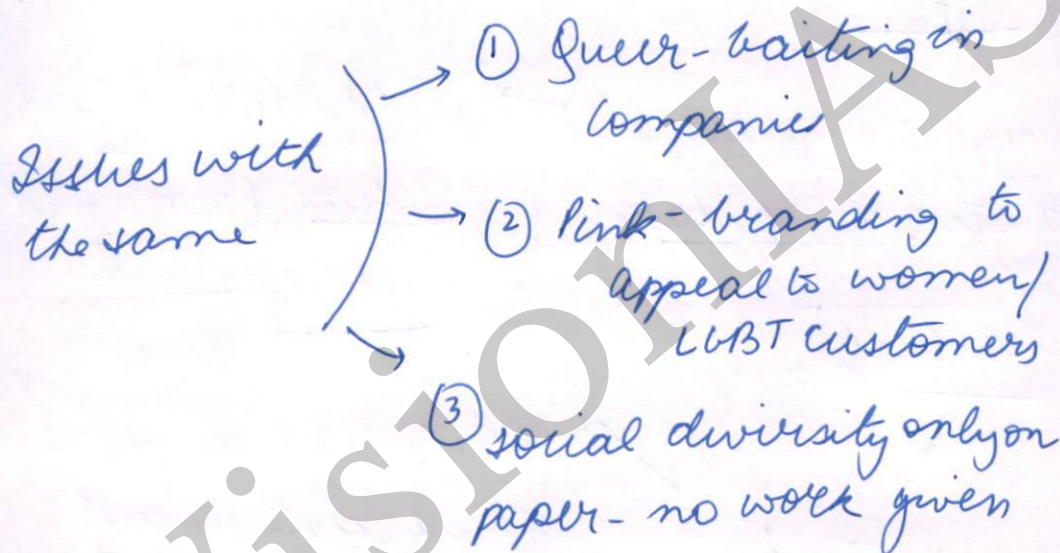 Issues with
the same
① Queer-baiting in
companies
② Pink-branding to
appeal to women/
LGBT customers
③ social diversity only on
paper - no work given
VisionIAS